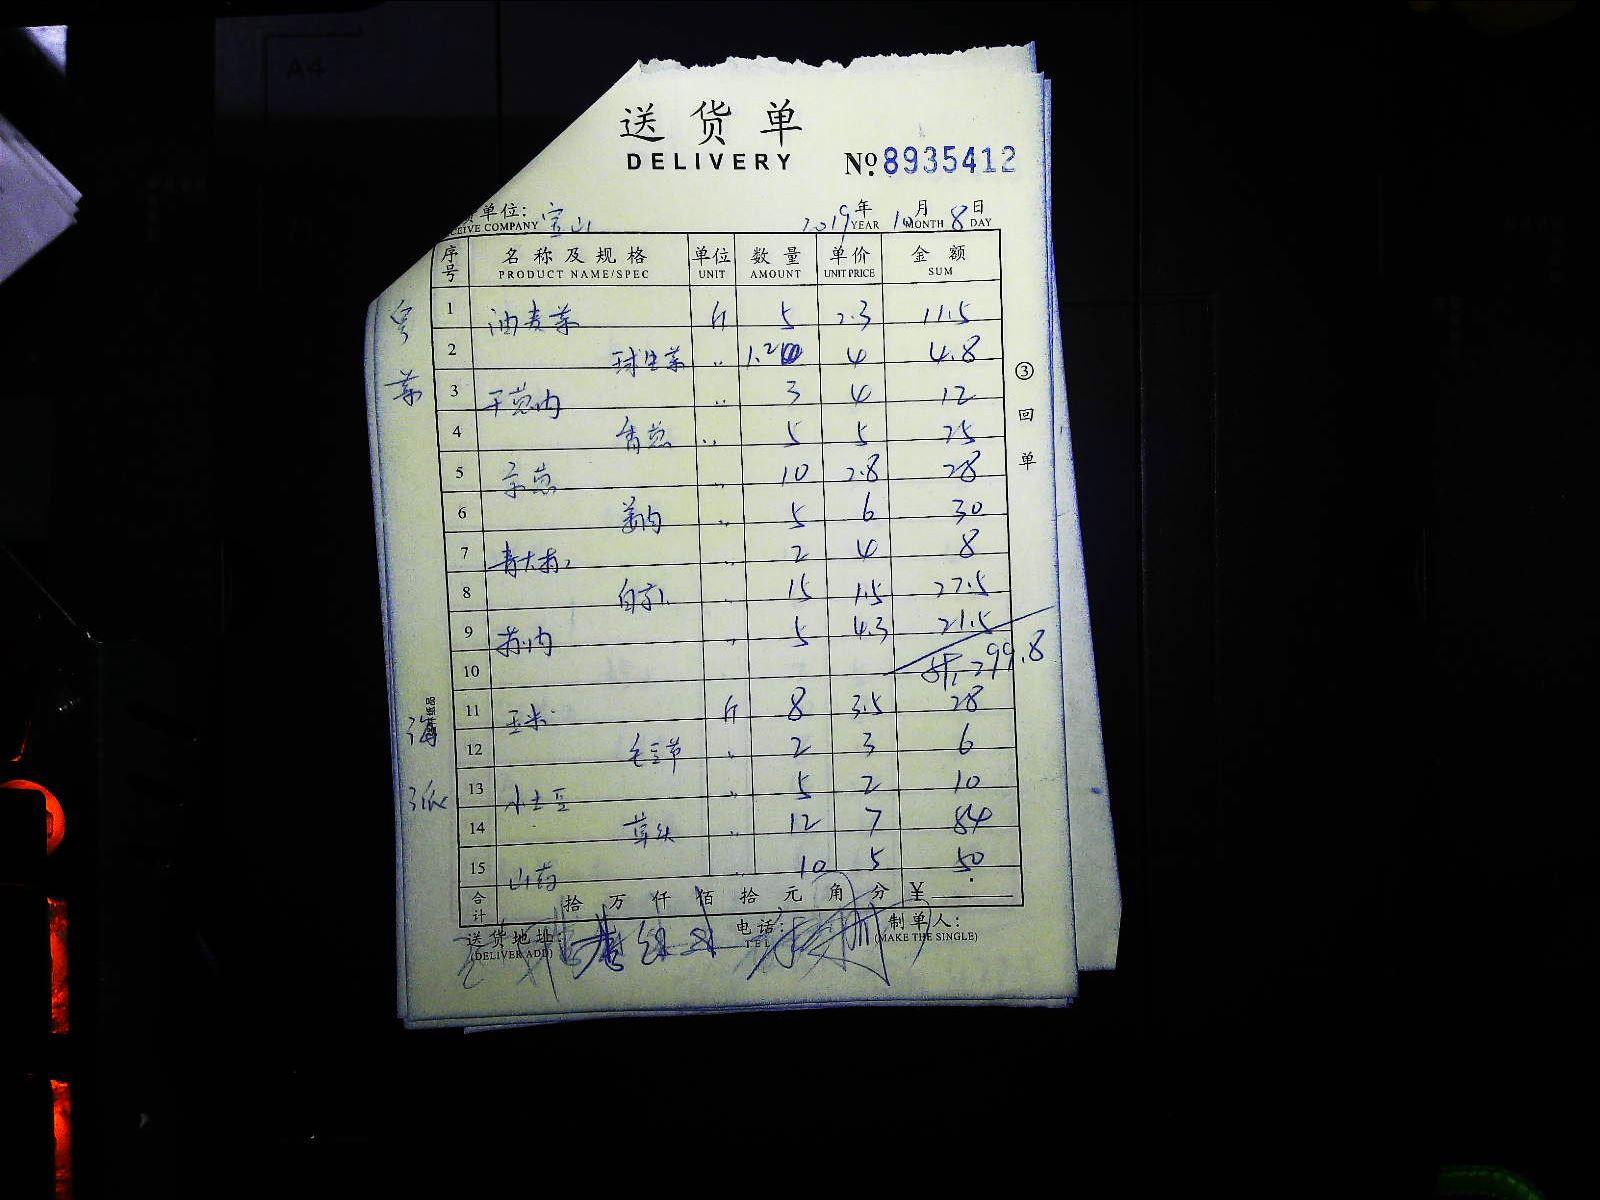 A4
送货单
DELIVERY
№: 8935412
货单位: 宝山 2019年 10月 8日
CEIVE COMPANY YEAR MONTH DAY
序号 名称及规格 单位 数量 单价 金额
PRODUCT NAME/SPEC UNIT AMOUNT UNIT PRICE SUM
1 油麦菜 斤 5 2.3 11.5
2 球生菜 〃 1.2 4 4.8
3 干葱肉 〃 3 4 12
4 香葱 〃 5 5 25
5 京葱 〃 10 2.8 28
6 姜肉 〃 5 6 30
7 青大椒 〃 2 4 8
8 〃 15 1.5 27.5
9 〃 5 4.3 21.5
10 299.8
11 玉米 斤 8 3.5 28
12 毛豆节 〃 2 3 6
13 小土豆 〃 5 2 10
14 草头 〃 12 7 84
15 山药 〃 10 5 50
合计 拾 万 仟 佰 拾 元 角 分 ¥
送货地址: 电话: 制单人:
(DELIVER ADD) TEL (MAKE THE SINGLE)
③回单
粤菜
海派